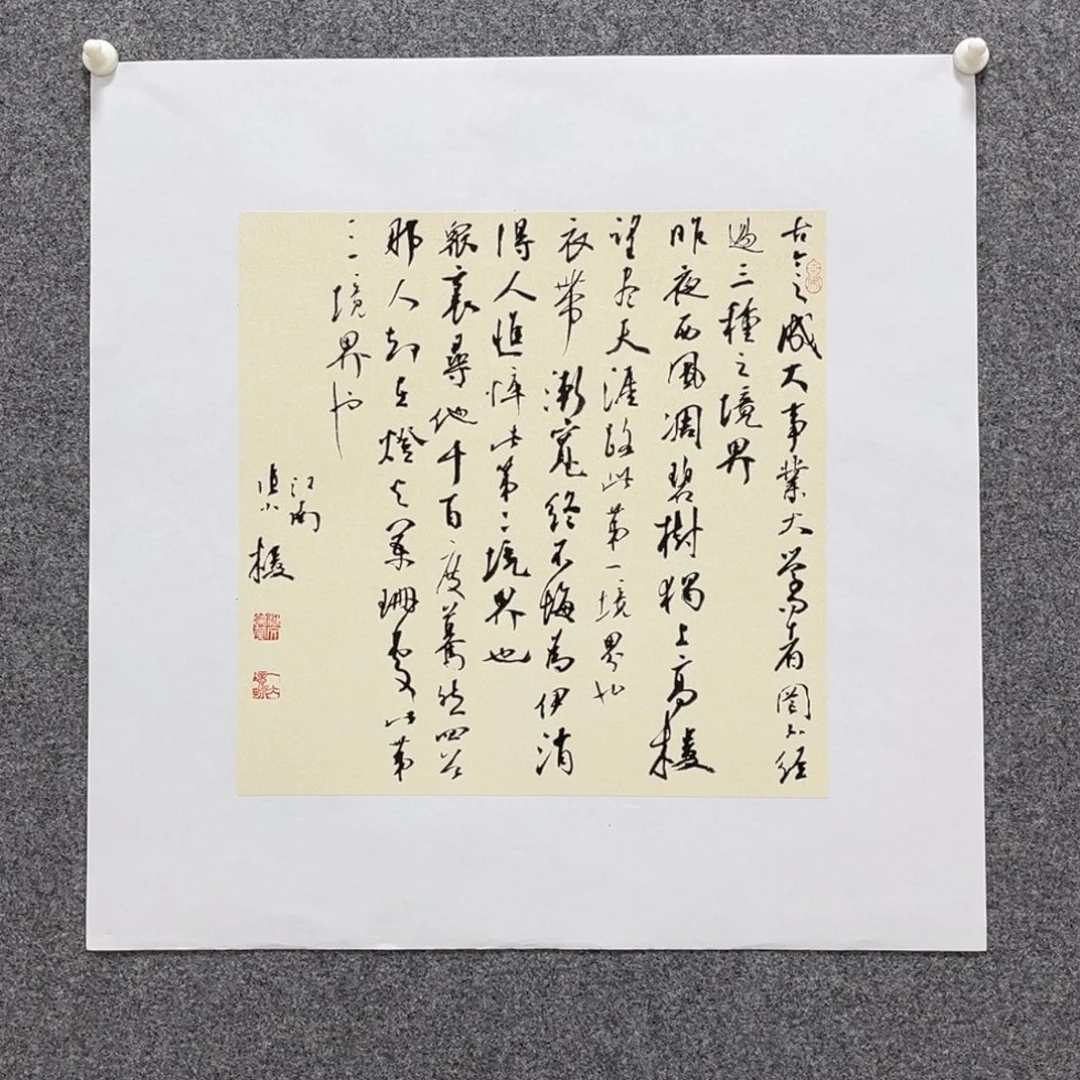 古今之成大事業大学者罔不经
過三種之境界
昨夜西風凋碧樹獨上高楼
望尽天涯路此第一境界也
衣带漸寬终不悔為伊消
得人憔悴此第二境界也
眾裏尋他千百度驀然回首
那人却在燈火阑珊处此第
三境界也
江南
楼